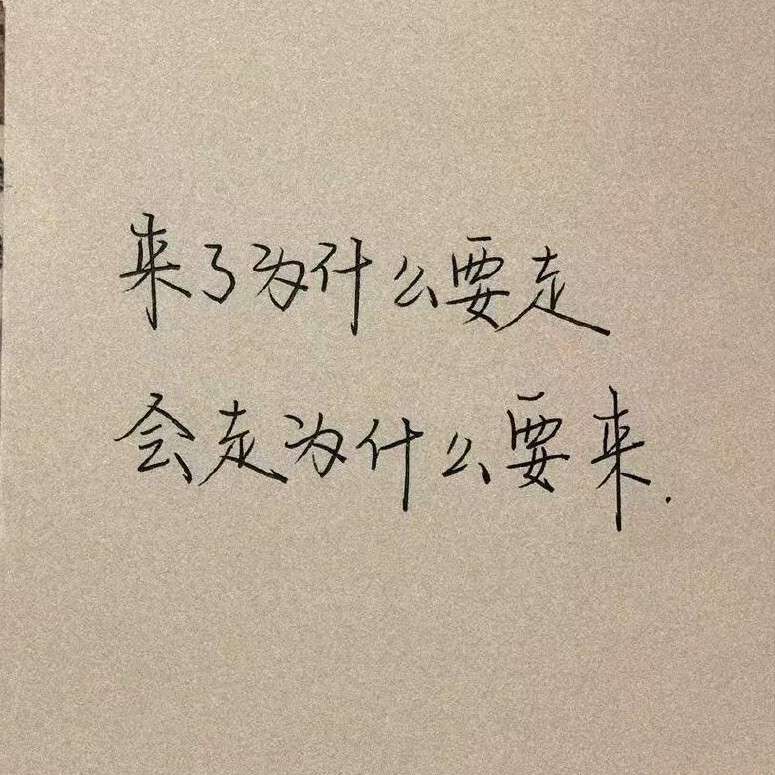 来了为什么要走
会走为什么要来.